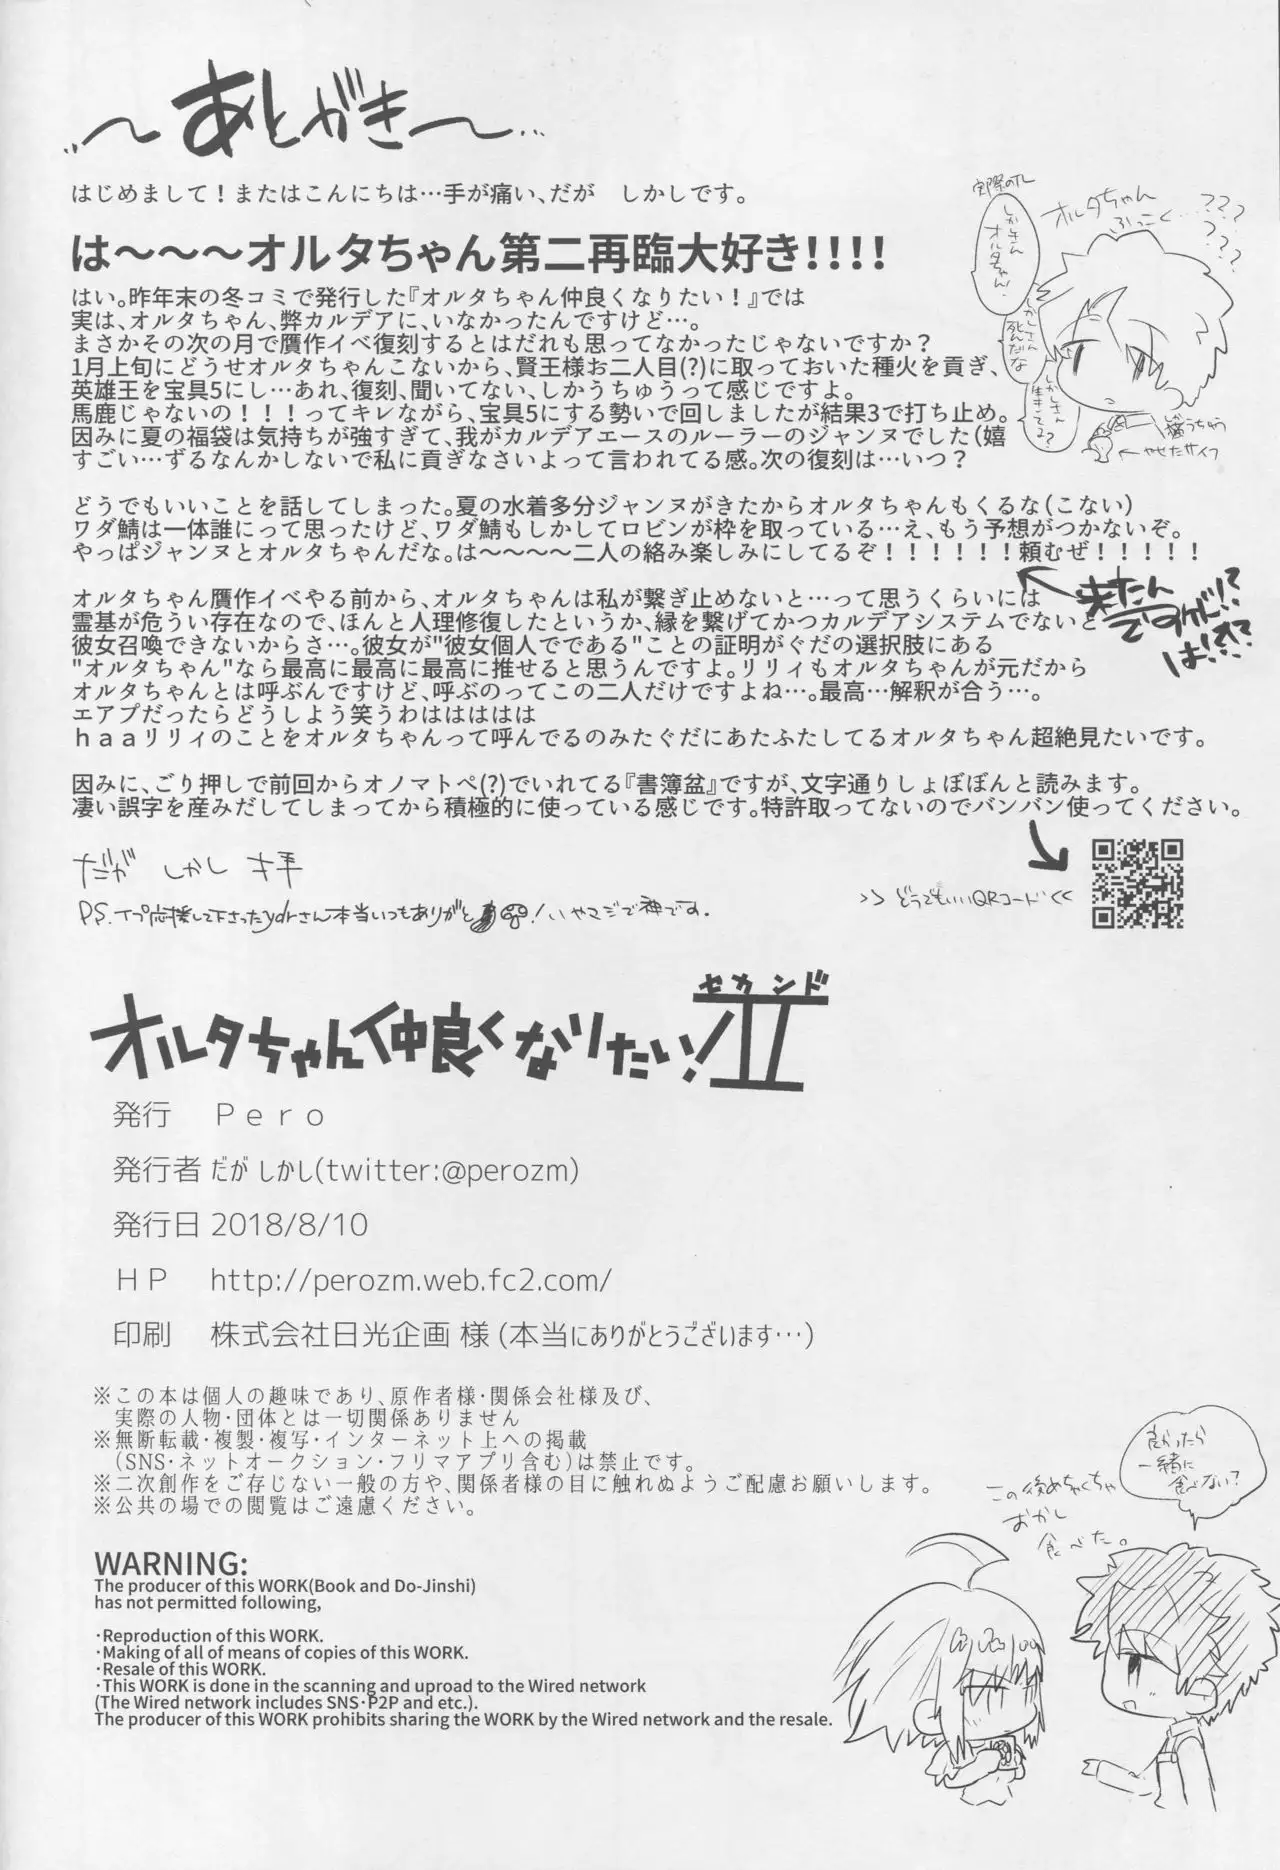 ～あとがき～…
はじめまして！またはこんにちは…手が痛い、だが　しかしです。
は～～～オルタちゃん第二再臨大好き！！！！
はい。昨年末の冬コミで発行した『オルタちゃん仲良くなりたい！』では
実は、オルタちゃん、弊カルデアに、いなかったんですけど…。
まさかその次の月で贋作イベ復刻するとはだれも思ってなかったじゃないですか？
1月上旬にどうせオルタちゃんこないから、賢王様お二人目(?)に取っておいた種火を貢ぎ、
英雄王を宝具5にし…あれ、復刻、聞いてない、しかうちゅうって感じですよ。
馬鹿じゃないの！！！ってキレながら、宝具5にする勢いで回しましたが結果3で打ち止め。
因みに夏の福袋は気持ちが強すぎて、我がカルデアエースのルーラーのジャンヌでした（嬉
すごい…ずるなんかしないで私に貢ぎなさいよって言われてる感。次の復刻は…いつ？
実際のTL
しかしさん
オルタちゃん！
しかしさん
死んだな
しかしさん
生きてる？
オルタちゃん
ふっこく…???
???
猫うちゅう
←やせたサイフ
どうでもいいことを話してしまった。夏の水着多分ジャンヌがきたからオルタちゃんもくるな（こない）
ワダ鯖は一体誰にって思ったけど、ワダ鯖もしかしてロビンが枠を取っている…え、もう予想がつかないぞ。
やっぱジャンヌとオルタちゃんだな。は～～～～二人の絡み楽しみにしてるぞ！！！！！！頼むぜ！！！！！
来たん
ですけど!?
オルタちゃん贋作イベやる前から、オルタちゃんは私が繋ぎ止めないと…って思うくらいには
霊基が危うい存在なので、ほんと人理修復したというか、縁を繋げてかつカルデアシステムでないと
彼女召喚できないからさ…。彼女が"彼女個人でである"ことの証明がぐだの選択肢にある
"オルタちゃん"なら最高に最高に最高に推せると思うんですよ。リリィもオルタちゃんが元だから
オルタちゃんとは呼ぶんですけど、呼ぶのってこの二人だけですよね…。最高…解釈が合う…。
エアプだったらどうしよう笑うわはははははは
ｈａａリリィのことをオルタちゃんって呼んでるのみたぐだにあたふたしてるオルタちゃん超絶見たいです。
因みに、ごり押しで前回からオノマトペ(?)でいれてる『書簿盆』ですが、文字通りしょぼぼんと読みます。
凄い誤字を産みだしてしまってから積極的に使っている感じです。特許取ってないのでバンバン使ってください。
だが しかし 拝
>> どうでもいいQRコード <<
P.S.イプ応援して下さったydrさん本当いつもありがと！いやマジで神です。
セカンド
オルタちゃん仲良くなりたい！II
発行　Ｐｅｒｏ
発行者 だが しかし(twitter:@perozm)
発行日 2018/8/10
ＨＰ　http://perozm.web.fc2.com/
印刷　株式会社日光企画 様 (本当にありがとうございます…)
※この本は個人の趣味であり、原作者様・関係会社様及び、
実際の人物・団体とは一切関係ありません
※無断転載・複製・複写・インターネット上への掲載
（SNS・ネットオークション・フリマアプリ含む）は禁止です。
※二次創作をご存じない一般の方や、関係者様の目に触れぬようご配慮お願いします。
※公共の場での閲覧はご遠慮ください。
良かったら
一緒に
食べない？
この後めちゃくちゃ
おかし
食べた。
WARNING:
The producer of this WORK(Book and Do-Jinshi)
has not permitted following,
・Reproduction of this WORK.
・Making of all of means of copies of this WORK.
・Resale of this WORK.
・This WORK is done in the scanning and uproad to the Wired network
(The Wired network includes SNS・P2P and etc.).
The producer of this WORK prohibits sharing the WORK by the Wired network and the resale.